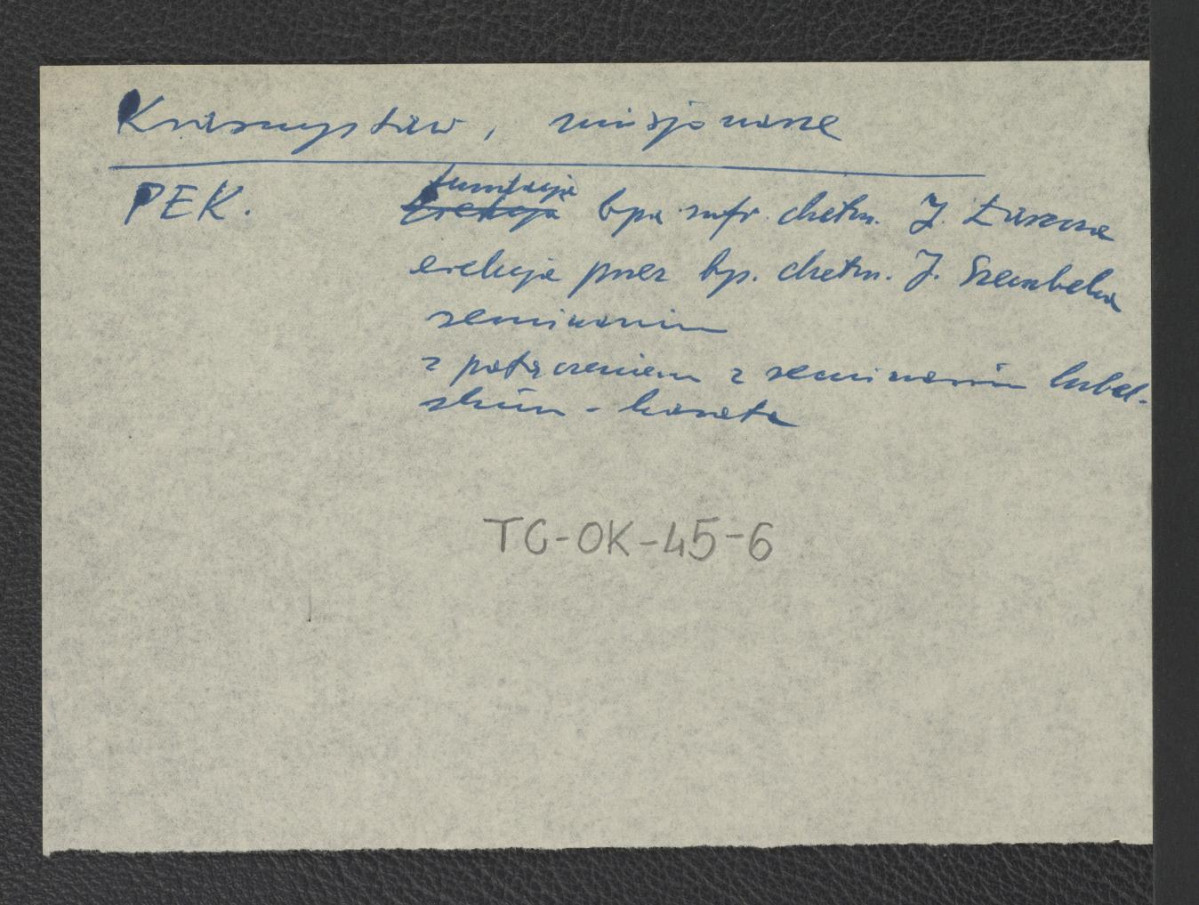 Krasnystaw, misjonarze
PEK. fundacja
Erekcja bpa sufr. chełm. J. Łaszcza
erekcja przez bp. chełm. J. Szembeka
seminarium
z połączeniem z seminarium lubel-
skim - kasata
TG-OK-45-6